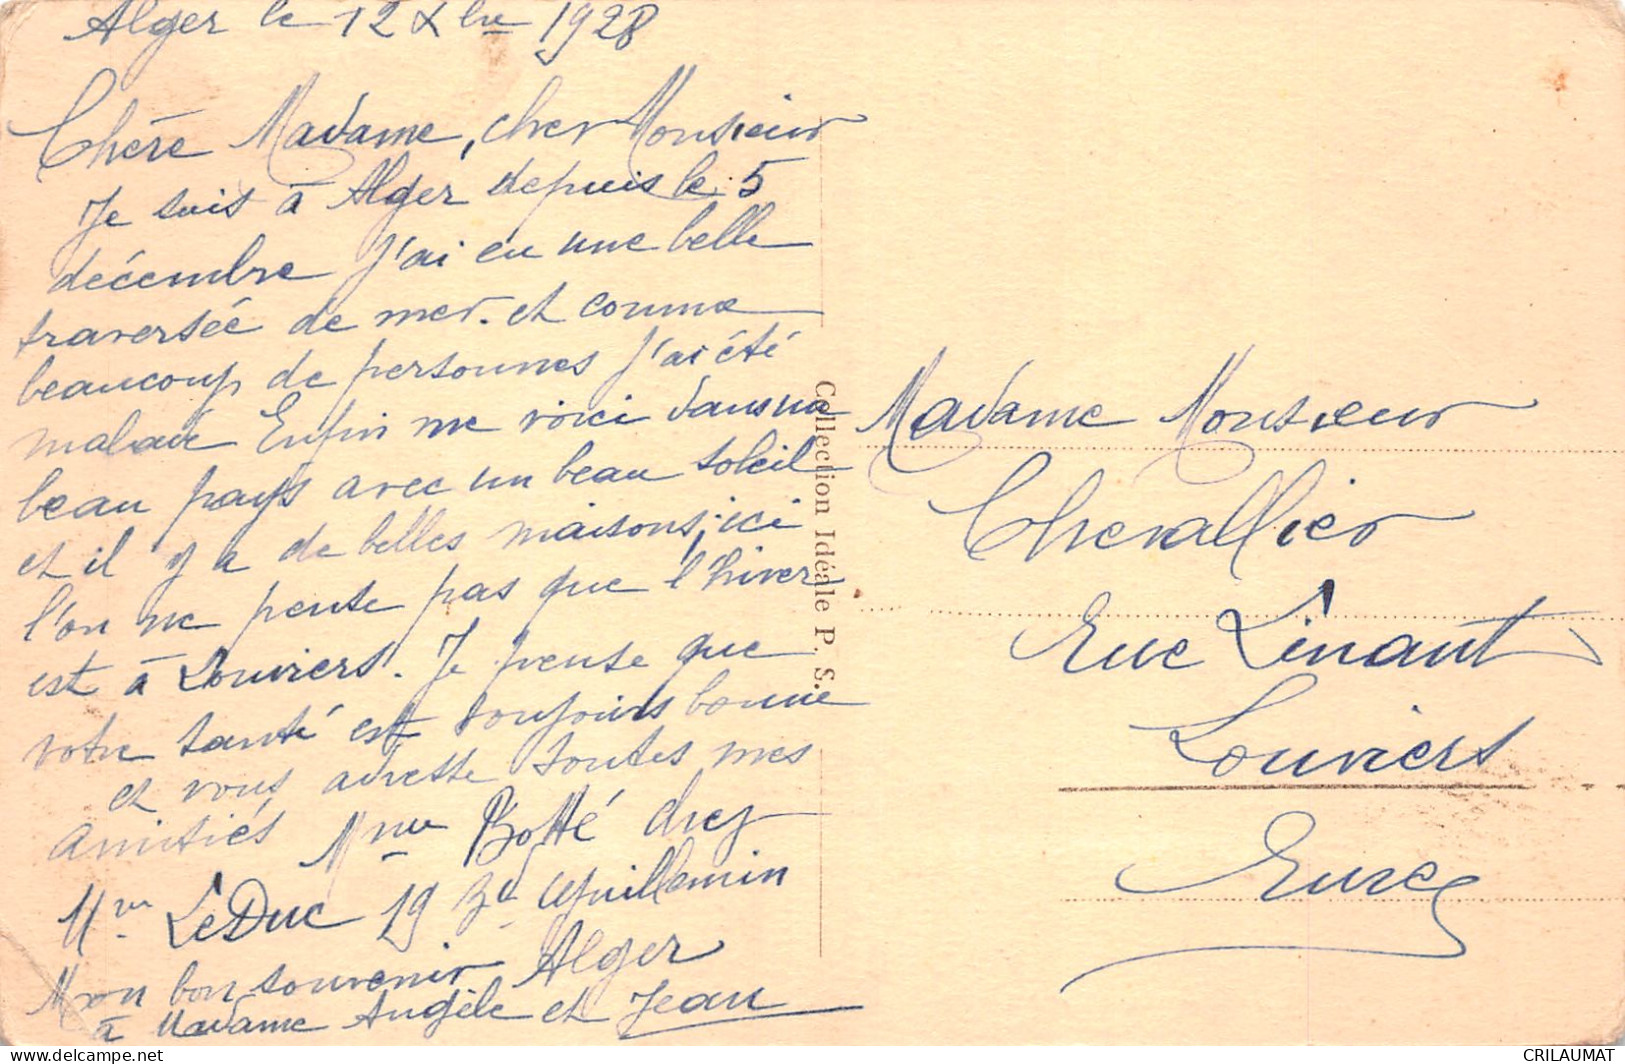 Alger le 12 Xbre 1928
Chère Madame, cher Monsieur
Je suis à Alger depuis le 5
décembre J'ai eu une belle
traversée de mer. et comme
beaucoup de personnes j'ai été
malade Enfin me voici dans un
beau pays avec un beau soleil
et il y a de belles maisons, ici
l'on ne pense pas que l'hiver
est à Louviers. Je pense que
votre santé est toujours bonne
et vous adresse toutes mes
amitiés Mme Botté chez
Mme LeDuc 19 Bd Guillemin
Alger
Mon bon souvenir
à Madame Angèle et Jean
Collection Idéale P. S.
Madame Monsieur
Chevallier
Rue Linant
Louviers
Eure
CRILAUMAT